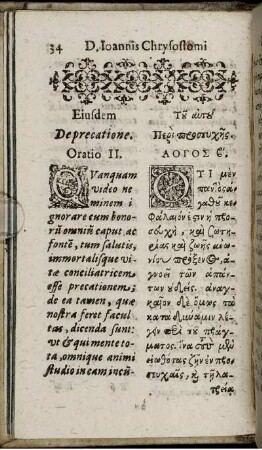 34 D. Ioannis Chrysostomi
Eiusdem
De precatione.
Oratio II.
QVanquam
video ne
minem i
gnorare eum bono-
rū omniū caput ac
fontē, tum salutis,
immortalisque vi-
tæ conciliatricem,
esse precationem;
de ea tamen, quæ
nostra feret facul
tas, dicenda sunt:
vt & qui mente to
ta, omnique animi
studio in eam incū
Τοῦ αὐτοῦ
Περὶ προσευχῆς.
ΛΟΓΟΣ β'.
ΟΤΙ μὲν
παντὸς ἀ
γαθοῦ κε
φάλαιόν ἐστιν ἡ προ
σευχὴ, καὶ σωτη
ρίας καὶ ζωῆς αἰω
νίου πρόξεν@, ἀ
γνοεῖ τῶν ἁπάν
των οὐδείς. ἀναγ
καῖον δὲ ὅμως
κατὰ δύναμιν λέ
γειν περὶ τοῦ πράγ
ματος. ἵνα
εἰωθότας ζῆν ἐν προ
σευχαῖς, κ τῇ λα
τρείᾳ